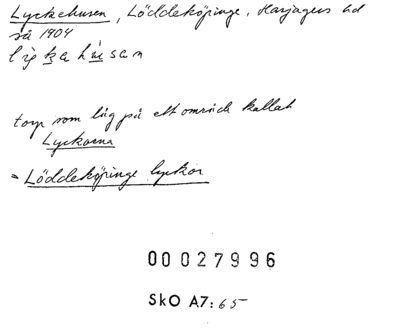 Lyckehusen, Löddeköpinge, Harjagers hd
så 1904
torp som låg på ett område kallat
Lyckorna
= Löddeköpinge lyckor
00027996
SkO A7:65